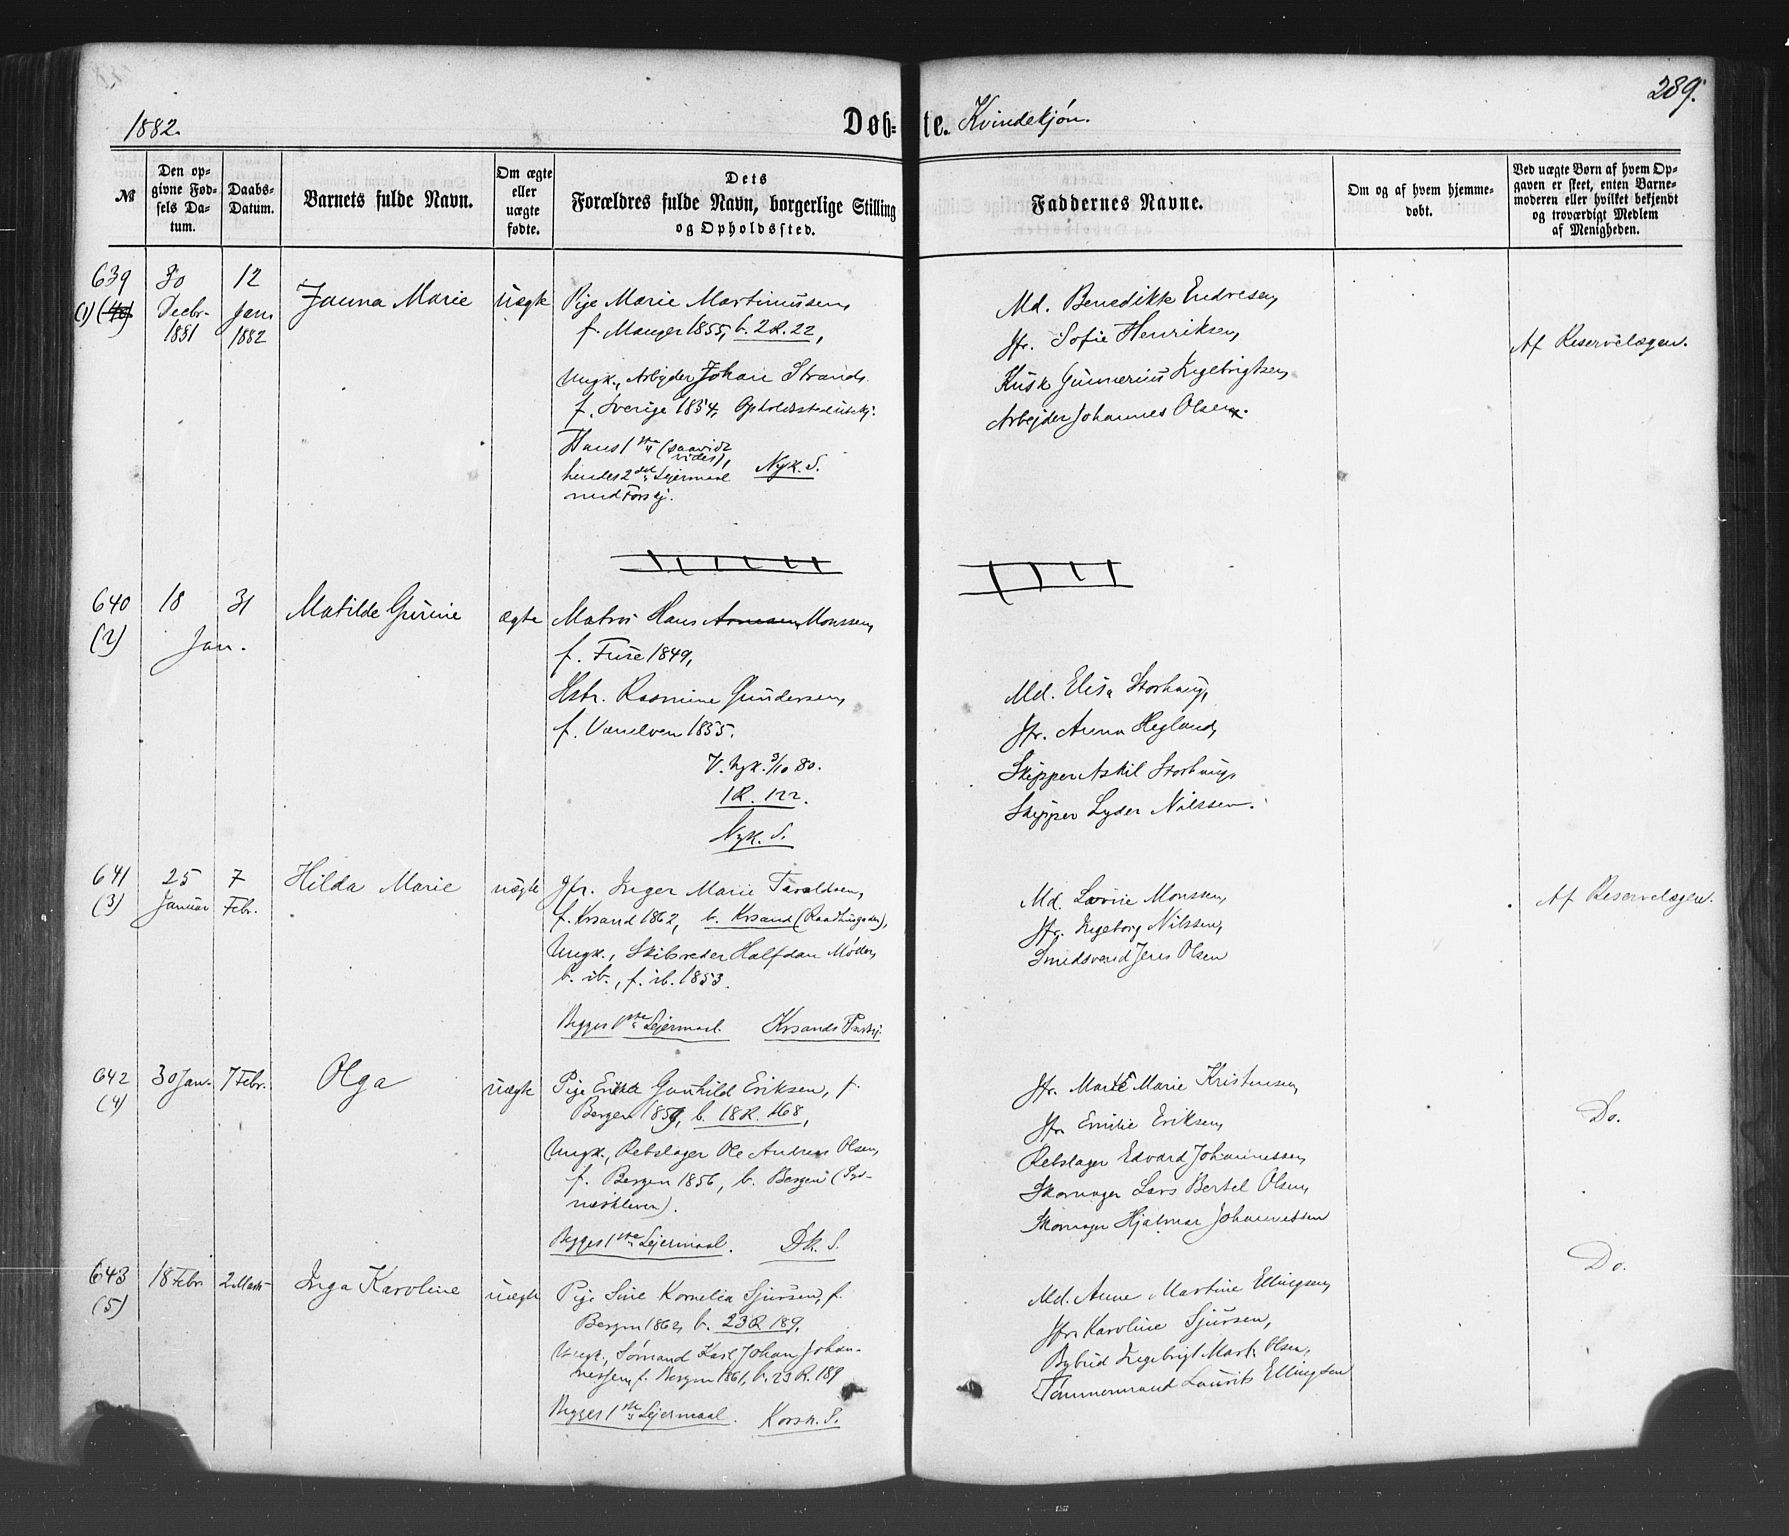 1882.
Døb=te. Kvindekjøn.
289.
№
Den opgivne Fødsels Datum.
Daabs-Datum.
Barnets fulde Navn.
Om ægte eller uægte fødte.
Dets Forældres fulde Navn, borgerlige Stilling og Opholdssted.
Faddernes Navne.
Om og af hvem hjemmedøbt.
Ved uægte Børn af hvem Opgaven er skeet, enten Barnemoderen eller hvilket bekjendt og troværdigt Medlem af Menigheden.
639
(1)
30 Decbr. 1881
12 Jan. 1882
Janna Marie
Uægte
Pige Marie Martinussen,
f. Manger 1855, b. 2 R. 22,
Ungk., Arbejder Johan Strand,
f. Sverige 1854, Opholdssted
Hans 1ste (saavidt vides),
hendes 2det Lejermaal
med Forskj.
Nyk. S.
Md. Benedikte Endresen,
Jfr. Sofie Henriksen,
Kusk Gunnerius Ingebrigtsen,
Arbejder Johannes Olsen.
Af Reservelægen.
640
(2)
18 31
Jan.
Matilde Gurine
ægte
Matros Hans Arnesen Monssen,
f. Fuse 1849,
Hstr. Rasmine Gundersen,
f. Vanelven 1855.
V. Nyk. 3/10 80.
1 R. 122.
Nyk. S.
Md. Elisa Storhaug,
Jfr. Anna Hegland,
Skipper Askil Storhaug,
Skipper Lyder Nilssen.
641
(3)
25 Januar
7 Febr.
Hilda Marie
uægte
Jfr. Inger Marie Taraldsen,
f. Krsand 1862, b. Krsand (Raadhusgaden),
Ungk., Skibsreder Halfdan Møder,
b. ib., f. ib. 1853.
Begges 1ste Lejermaal. Krsands
Md. Lovise Monssen,
Jfr. Ingeborg Nilssen,
Smedsvend Jens Olsen
Af Reservelægen.
642
(4)
30 Jan.
7 Febr.
Olga
uægte
Pige Erikka Gunhild Eriksen, f.
Bergen 1859, b. 18 R. 168,
Ungk., Rebslager Ole Andreas Olsen,
f. Bergen 1856, b. Bergen
Begges 1ste Lejermaal. Dk. S.
Jfr. Marte Marie Kristensen,
Jfr. Emilie Eriksen,
Rebslager Edvard Johannessen,
Skomager Lars Bertel Olsen,
Skomager Hjalmar Johannessen
Do.
643
(5)
18 Febr.
2 Marts
Inga Karoline
uægte
Pige Sine Kornelia Sjursen, f.
Bergen 1862, b. 23 R 189,
Ungk., Sømand Karl Johan Johan-
nessen, f. Bergen 1861, b. 23 R. 189
Begges 1ste Lejermaal. Korsk. S.
Md. Anne Martine Ellingsen,
Jfr. Karoline Sjursen,
Bybud Ingebrigt Mart. Olsen,
Tømmermand Laurits Ellingsen
Do.